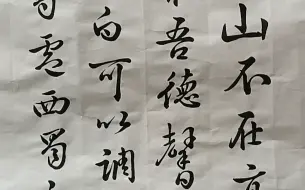 山不在
吾德馨
白可以調
盧西蜀